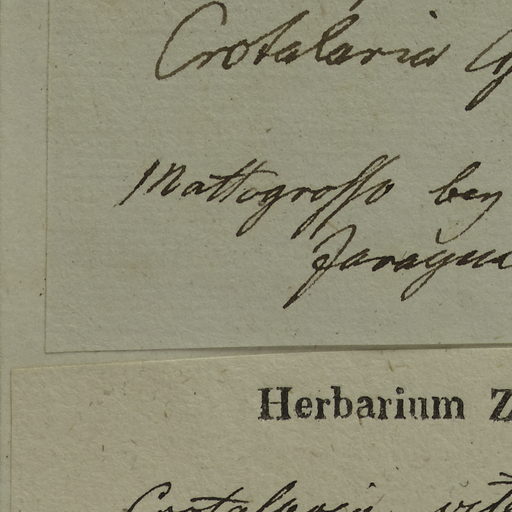 Crotalaria
Mattogrosso bey
Jaragua
Herbarium Z
Crotalaria vit